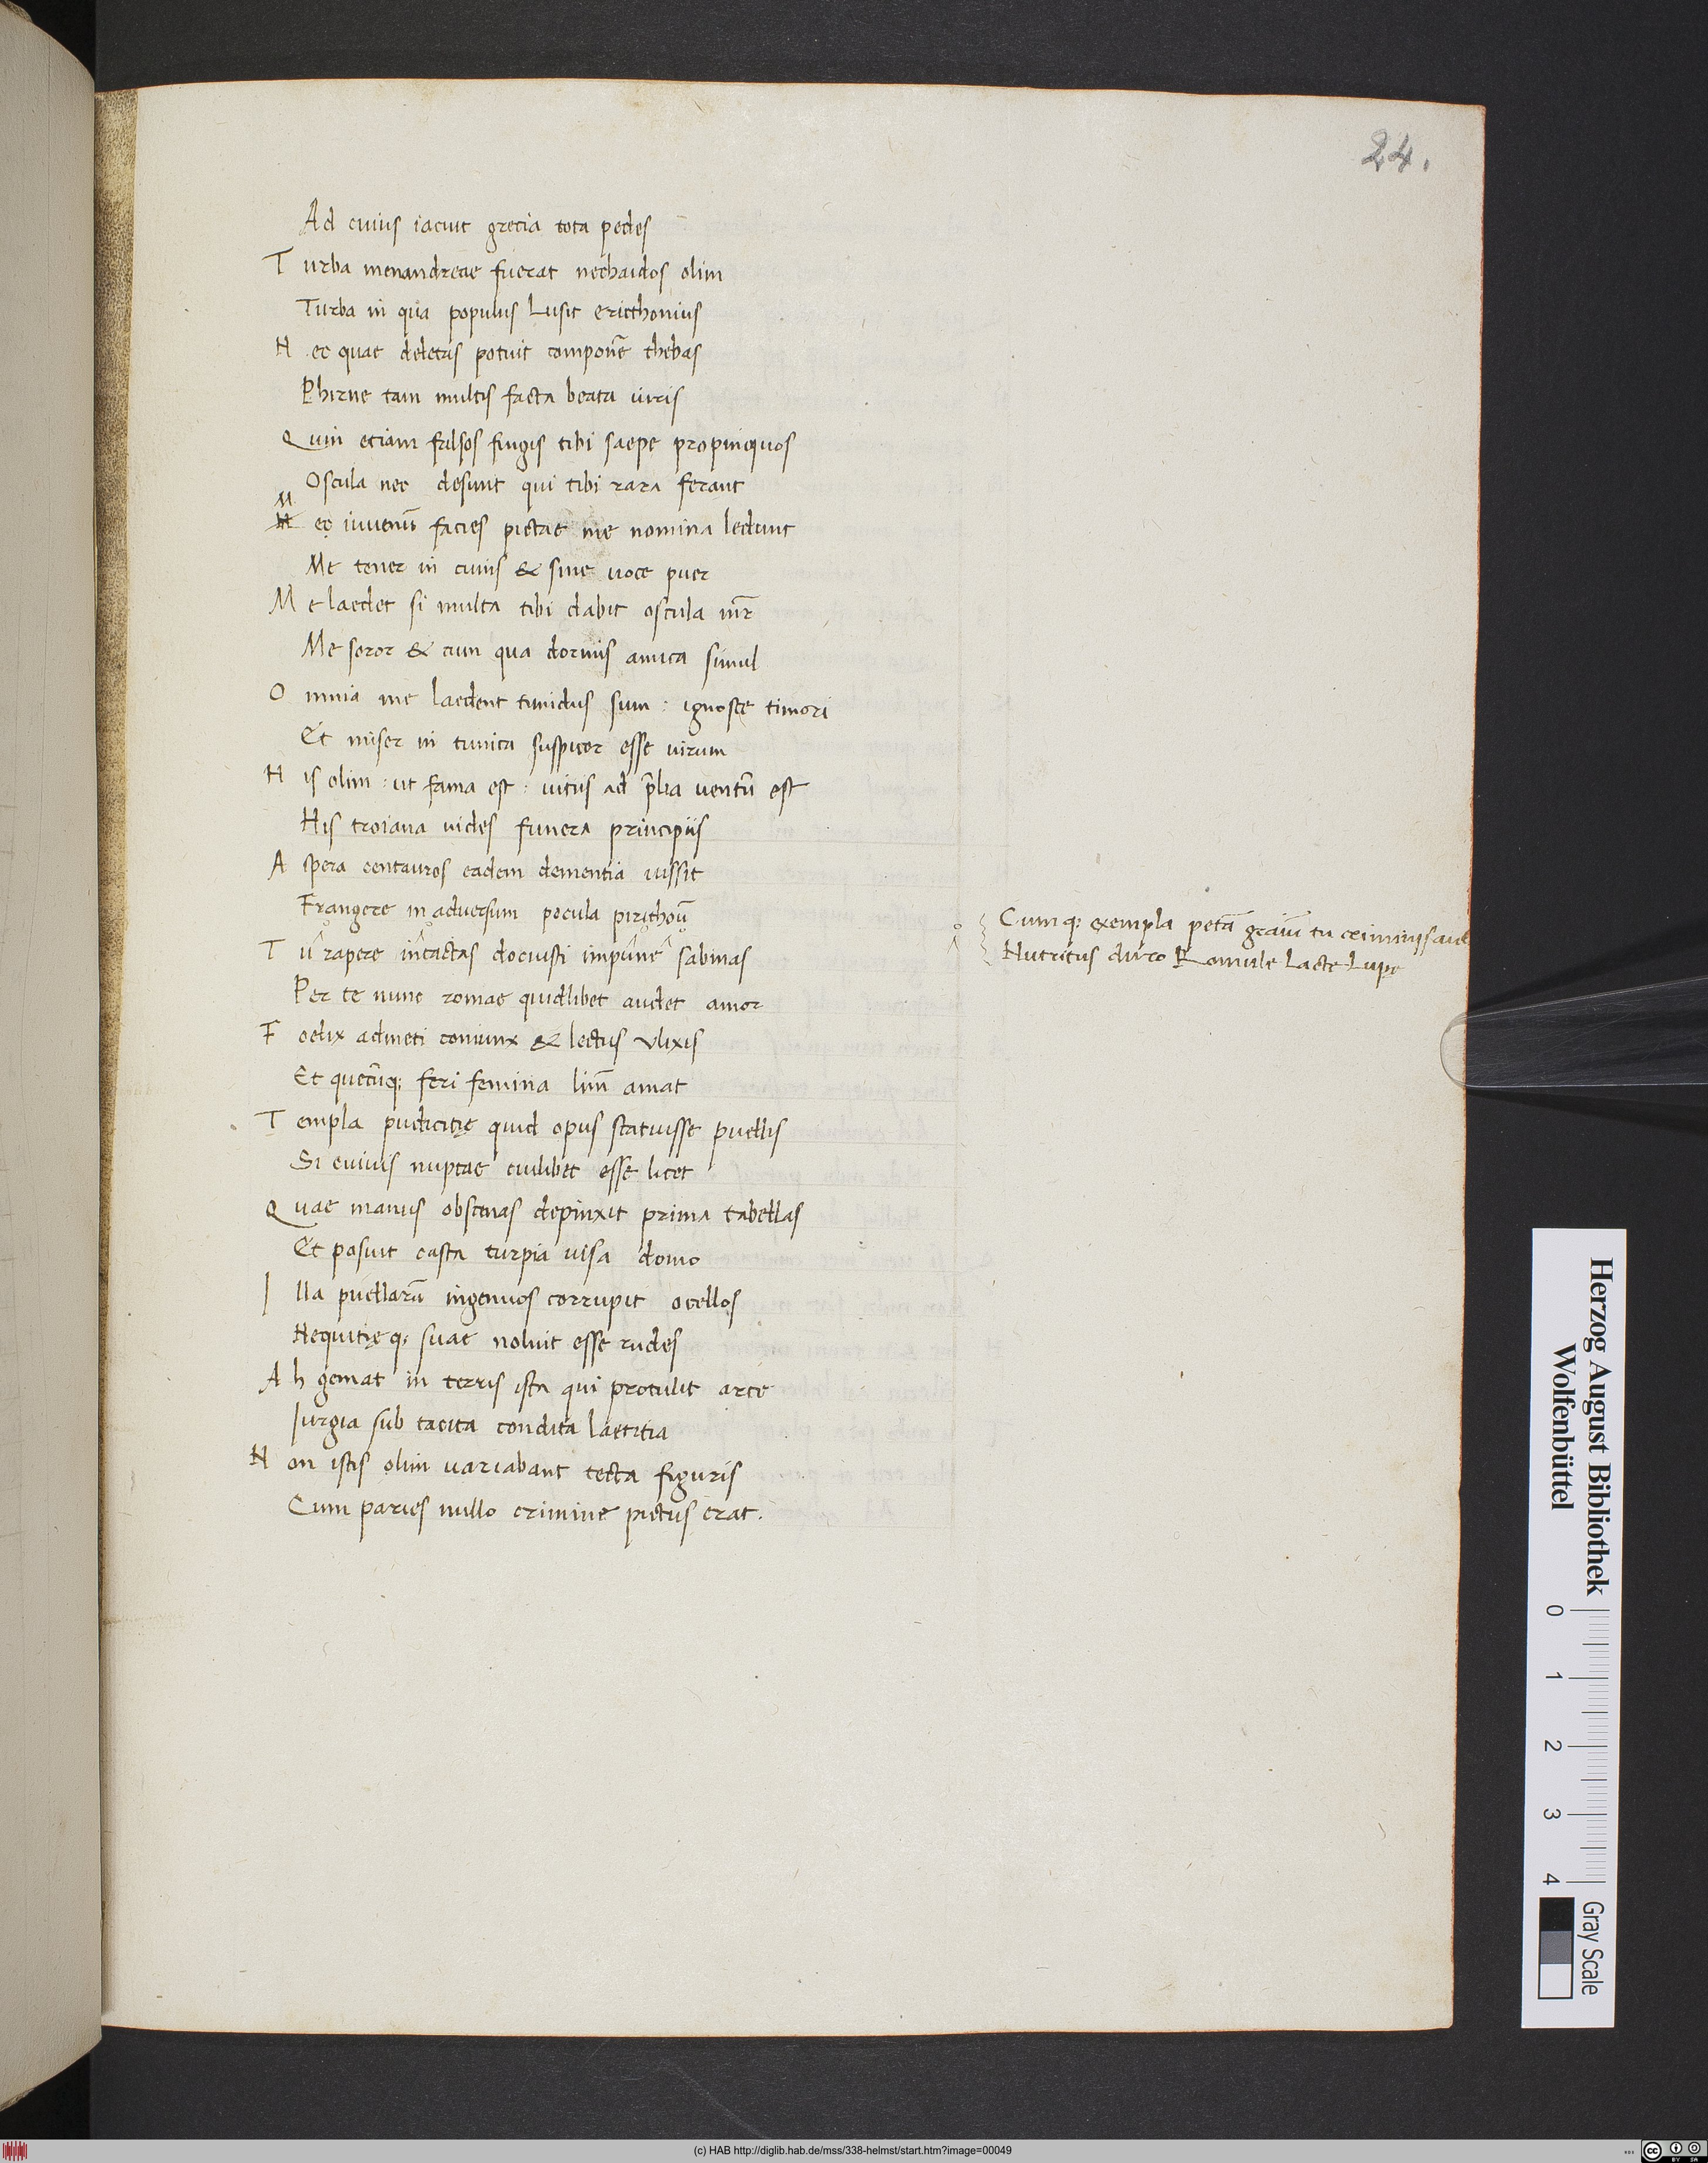 24.
Ad cuius iacuit grecia tota pedes
Turba menandreae fuerat nechaidos olim
Turba in qua populus Lusit ericthonius
Nec quae deletas potuit componē thebas
Phirne tam multis facta beata uiris
Quin etiam falsos fingis tibi saepe propinquos
Oscula nec desunt qui tibi rara ferant
M
Nec iuuenū facies pictae me nomina ledunt
Me tener in cunis & sine uoce puer
Me laedet si multa tibi dabit oscula mr̄
Me soror & cum qua dormis amica simul
Omnia me laedent timidus sum : ignosce timori
Et miser in tunica suspicor esse uirum
His olim : ut fama est : uitiis ad p̄lia uentū est
His troiana uides funera principiis
Aspera centauros eadem dementia iussit
Frangere in aduersum pocula pirithoū
Cumq; exempla petā graiū tu criminis aut
Nutritus duro Romule Lacte Lupe
Tu rapere intactas docuisti impune sabinas
Per te nunc romae quidlibet audet amor
Foelix admeti coniunx & lectus vlixis
Et quecūq; feri femina lim̄ amat
Templa pudicitię quid opus statuisse puellis
Si cuiuis nuptae cuilibet esse licet
Quae manus obscenas depinxit prima tabellas
Et posuit casta turpia uisa domo
Illa puellarū ingenuos corrupit ocellos
Nequitięq; suae noluit esse rudes
Ah gemat in terris ista qui protulit arte
Iurgia sub tacita condita laetitia
Non istis olim variabant tecta figuris
Cum paries nullo crimine pictus erat.
Herzog August Bibliothek
Wolfenbüttel
0 1 2 3 4
Gray Scale
(c) HAB http://diglib.hab.de/mss/338-helmst/start.htm?image=00049
cc BY SA